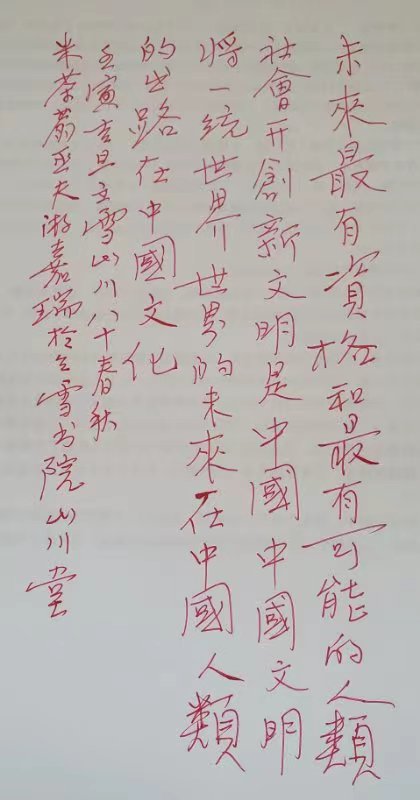 未來最有資格和最有可能的人類
社會开創新文明是中國中國文明
將一統世界世界的未來在中國人類
的出路在中國文化
壬寅吉旦立雪山川八十春秋
米芾蕭丞夫游嘉瑞於立雪书院山川堂